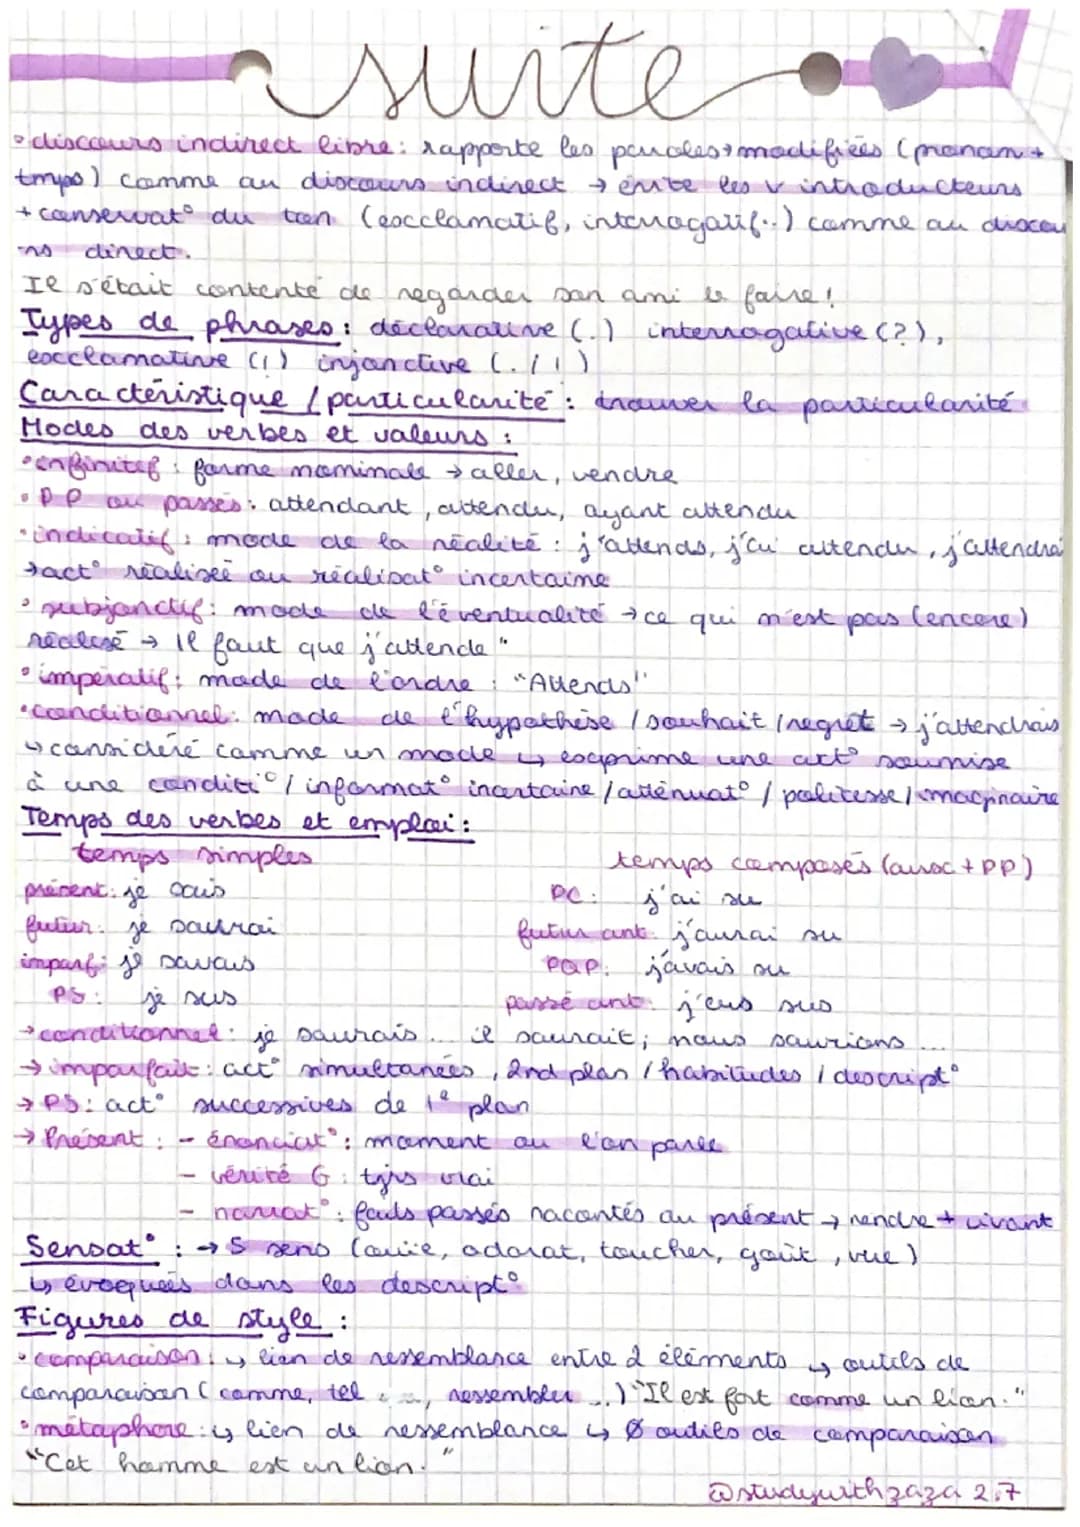 suite
• discours indirect libre : rapporte les paroles → modifiées (pronom +
tmps) comme au discours indirect → évite les v introducteurs
+ conservat° du ton (exclamatif, interrogatif...) comme au discou
rs direct.
Il s'était contenté de regarder son ami le faire !
Types de phrases : déclarative (.) interrogative (?),
exclamative (!) injonctive (. / !)
Caractéristique / particularité : trouver la particularité
Modes des verbes et valeurs :
• infinitif : forme nominale → aller, vendre
• PP ou passés : attendant, attendu, ayant attendu
• indicatif : mode de la réalité : j'attends, j'ai attendu, j'attendrai
→ act° réalisée ou réalisat° incertaine
• subjonctif : mode de l'éventualité → ce qui n'est pas (encore)
réalisé → Il faut que j'attende"
• impératif : mode de l'ordre : "Attends"
• conditionnel : mode de l'hypothèse / souhait / regret → j'attendrais
↳ considéré comme un mode ↳ exprime une act° soumise
à une conditi° / informat° incertaine / atténuat° / politesse / imaginaire
Temps des verbes et emploi :
temps simples temps composés (aux + PP)
présent : je sais PC : j'ai su
futur : je saurai futur ant : j'aurai su
imparf : je savais PQP : j'avais su
PS : je sus passé ant : j'eus sus
→ conditionnel : je saurais ... il saurait ; nous saurions ...
→ imparfait : act° simultanées, 2nd plan / habitudes / descript°
→ PS : act° successives de 1e plan
→ Présent : - énonciat° : moment ou l'on parle
- vérité G : tjrs vrai
- narrat° : faits passés racontés au présent → rendre + vivant
Sensat° : → 5 sens (ouïe, odorat, toucher, goût, vue)
↳ évoquées dans les descript°
Figures de style :
• comparaison : ↳ lien de ressemblance entre 2 éléments ↳ outils de
comparaison (comme, tel ..., ressembler ...) "Il est fort comme un lion."
• métaphore : ↳ lien de ressemblance ↳ Ø outils de comparaison
"Cet homme est un lion."
@studywithzaza 2.7